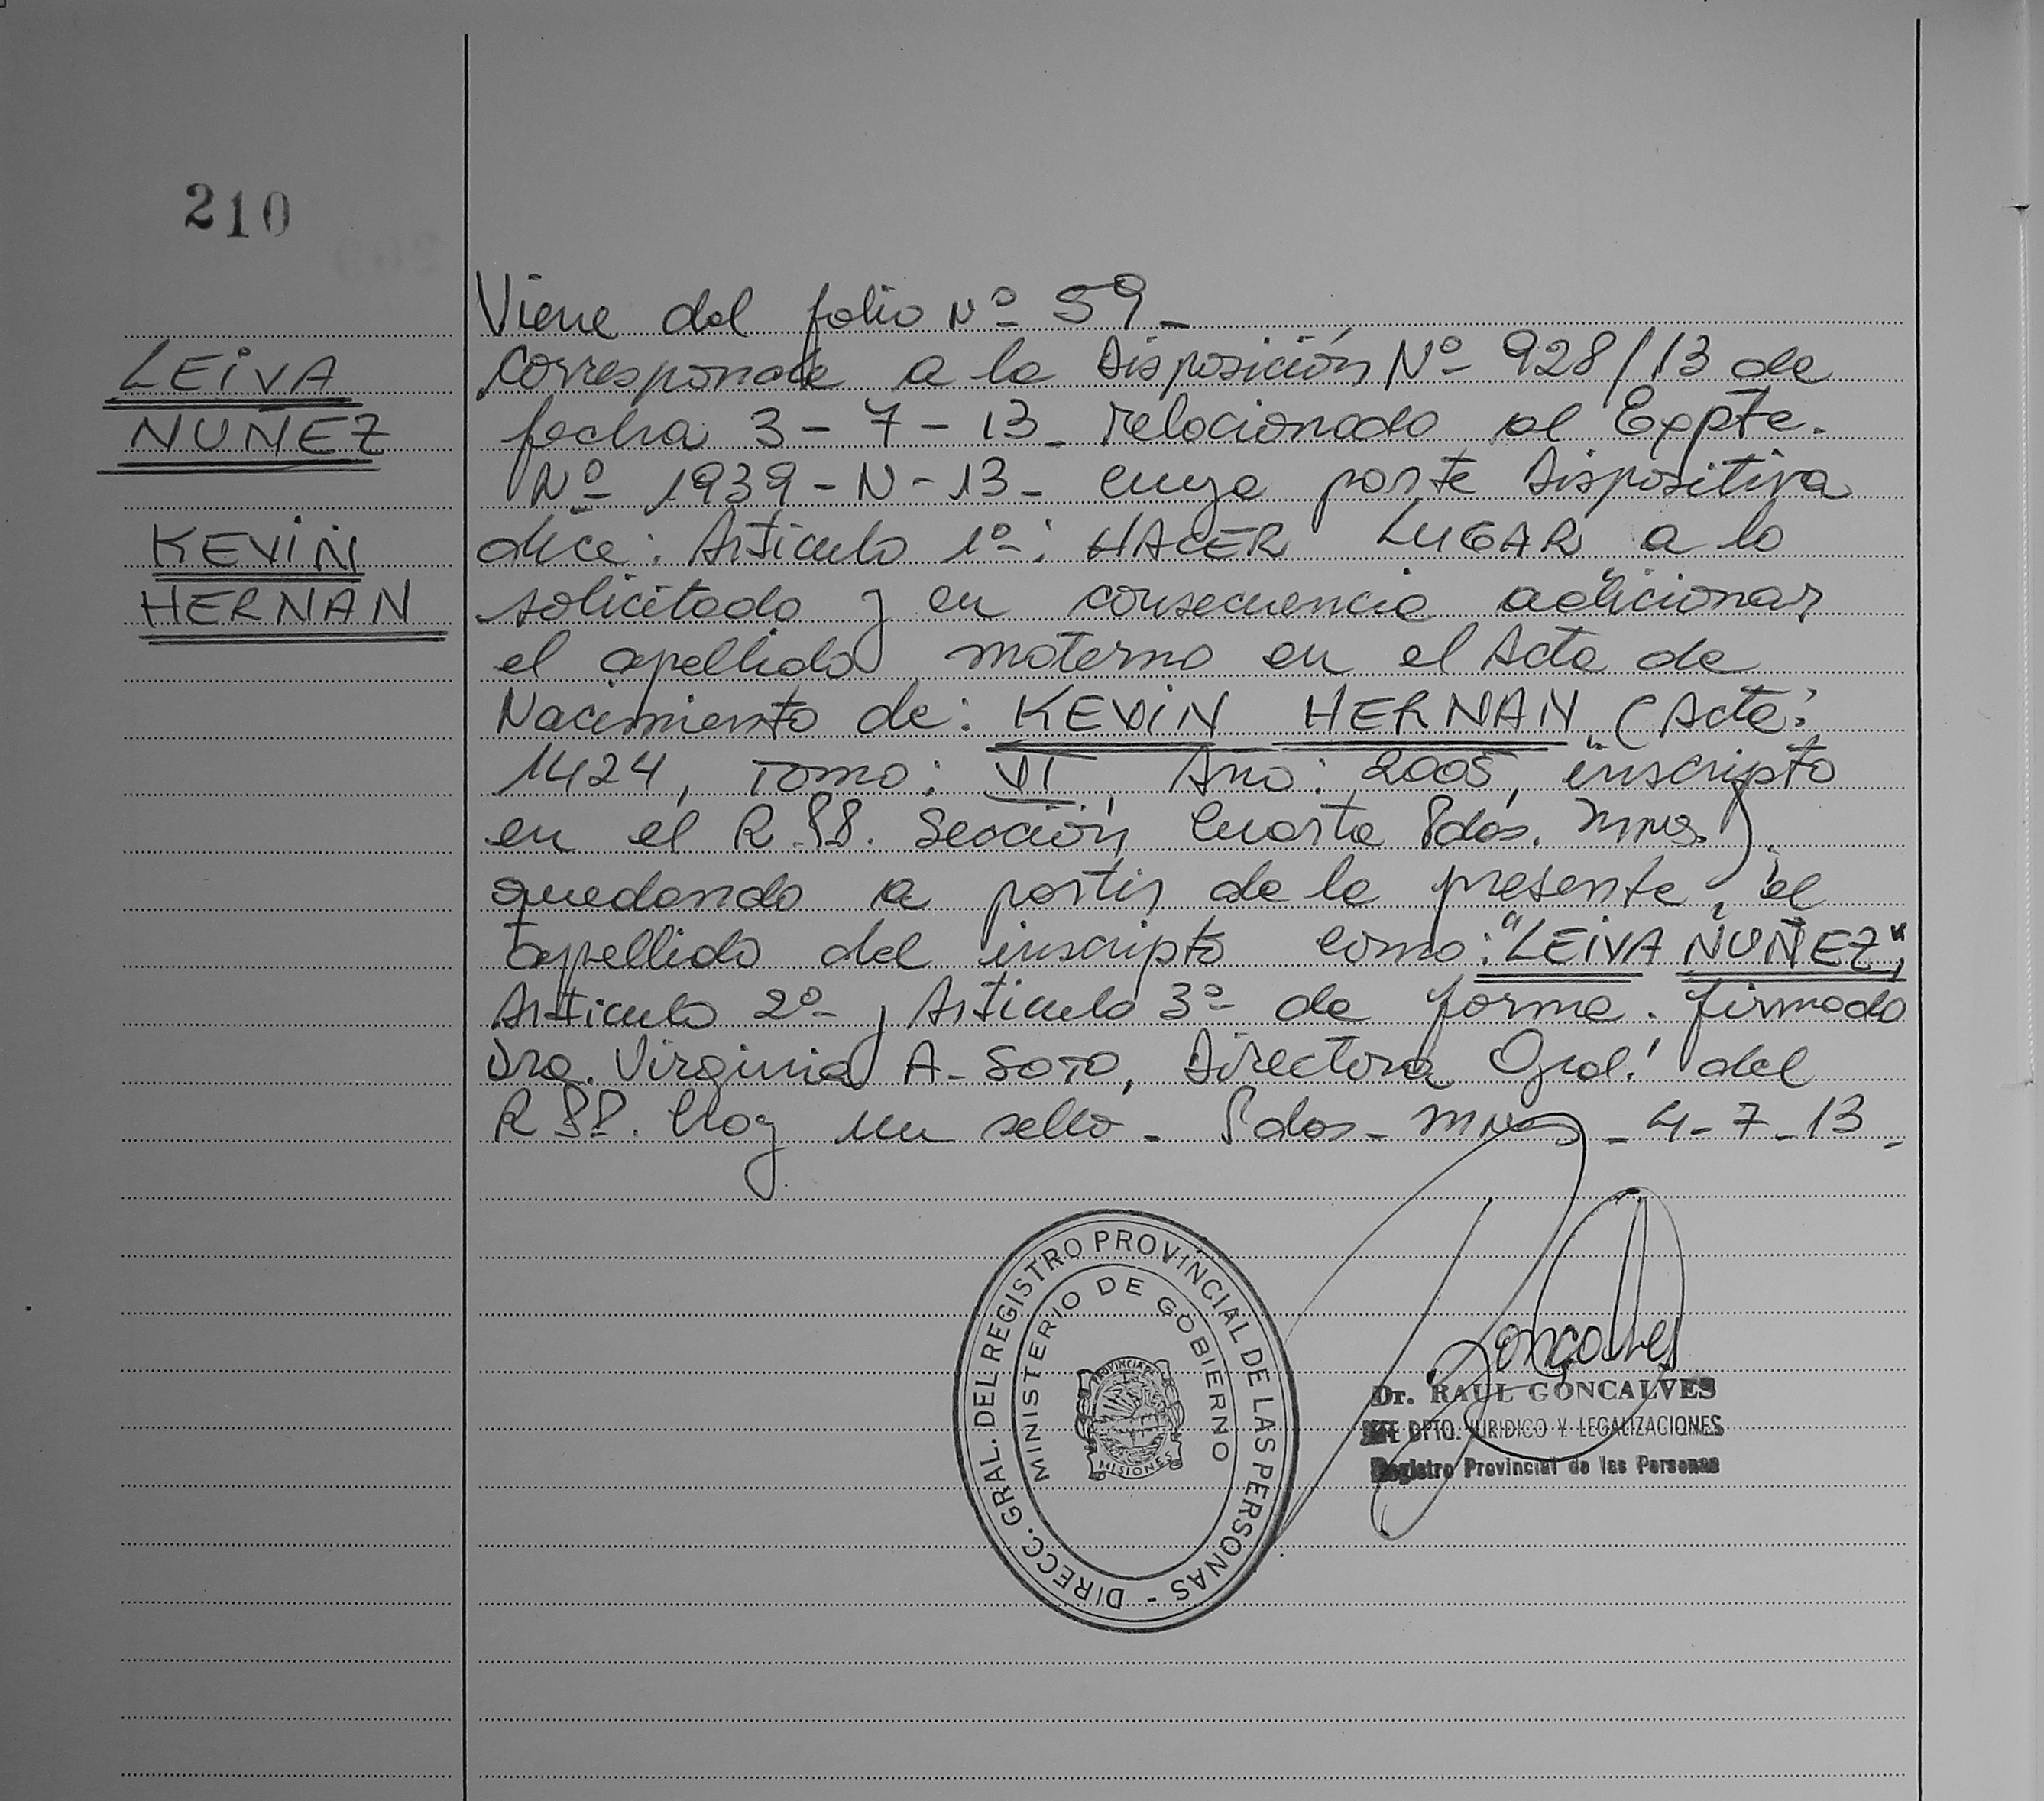 210
LEIVA
NUÑEZ
KEVIN
HERNAN
Viene del folio Nº 59_
Corresponde a la Disposición Nº 928/13 de
fecha 3-7-13_ relacionado al Expte.
Nº 1939-N-13_ cuya parte Dispositiva
dice: Artículo 1º: HACER LUGAR a lo
solicitado y en consecuencia adicionar
el apellido materno en el Acta de
Nacimiento de: KEVIN HERNAN (Acta:
1424, Tomo: VI, Año: 2005, inscripto
en el R.PP. Sección Cuarta Pdas. Mnes.)
quedando a partir de la presente, el
apellido del inscripto como: "LEIVA NUÑEZ",
Artículo 2º y Artículo 3º de forma. firmado
Dra. Virginia A. SOTO, Directora Gral. del
R.PP. Hay un sello_ Pdas_ Mnes_ 4-7-13_
DIRECC. GRAL. DEL REGISTRO PROVINCIAL DE LAS PERSONAS -
MINISTERIO DE GOBIERNO
PROVINCIA DE
MISIONES
Goncalves
Dr. RAUL GONCALVES
JEFE DPTO. JURIDICO Y LEGALIZACIONES
Registro Provincial de las Personas